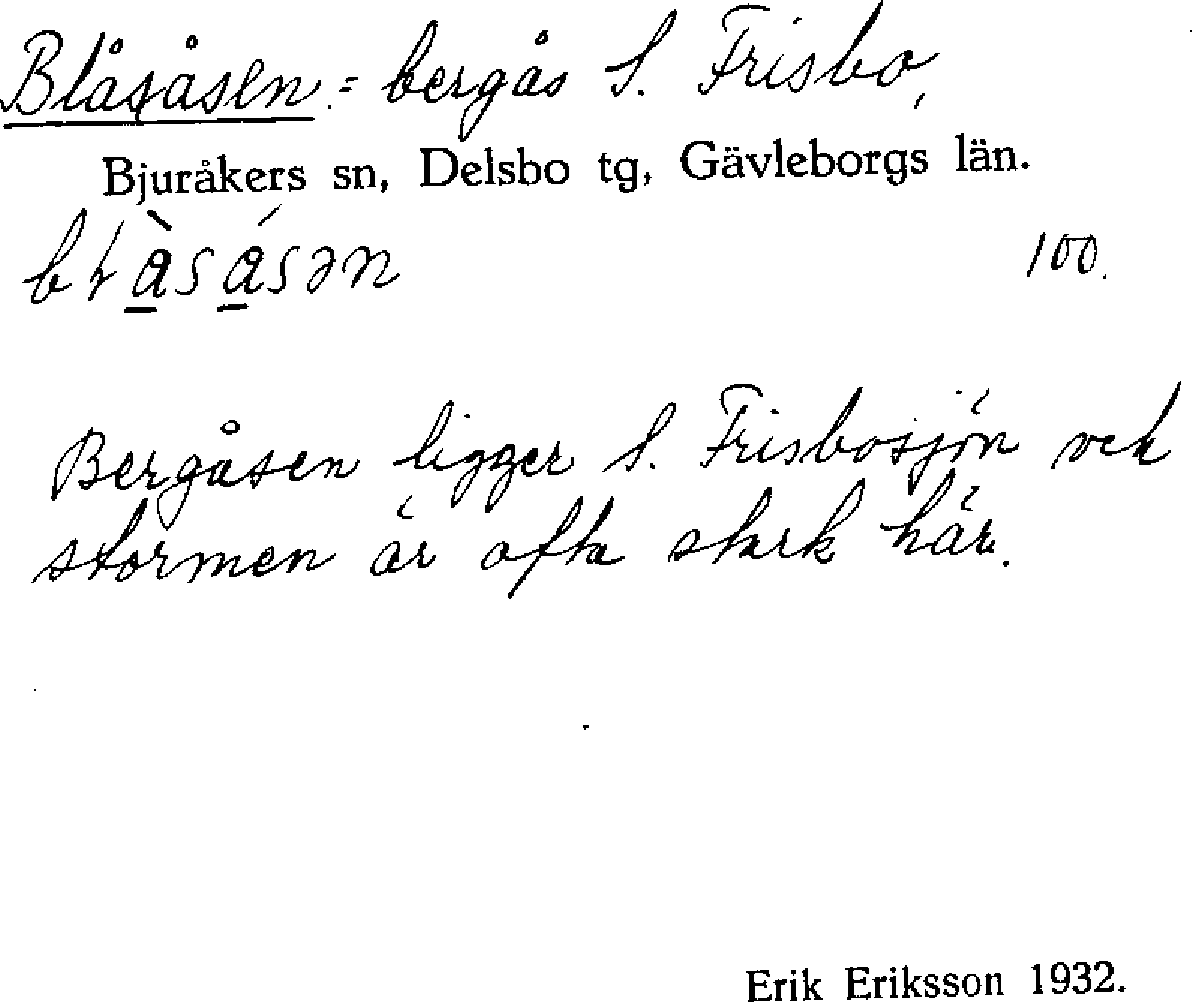 Blåsåsen = bergås S. Frisbo,
Bjuråkers sn, Delsbo tg, Gävleborgs län.
bɫå̀sǻsən 100.
Bergåsen ligger S. Frisbosjön och
stormen är ofta stark här.
Erik Eriksson 1932.